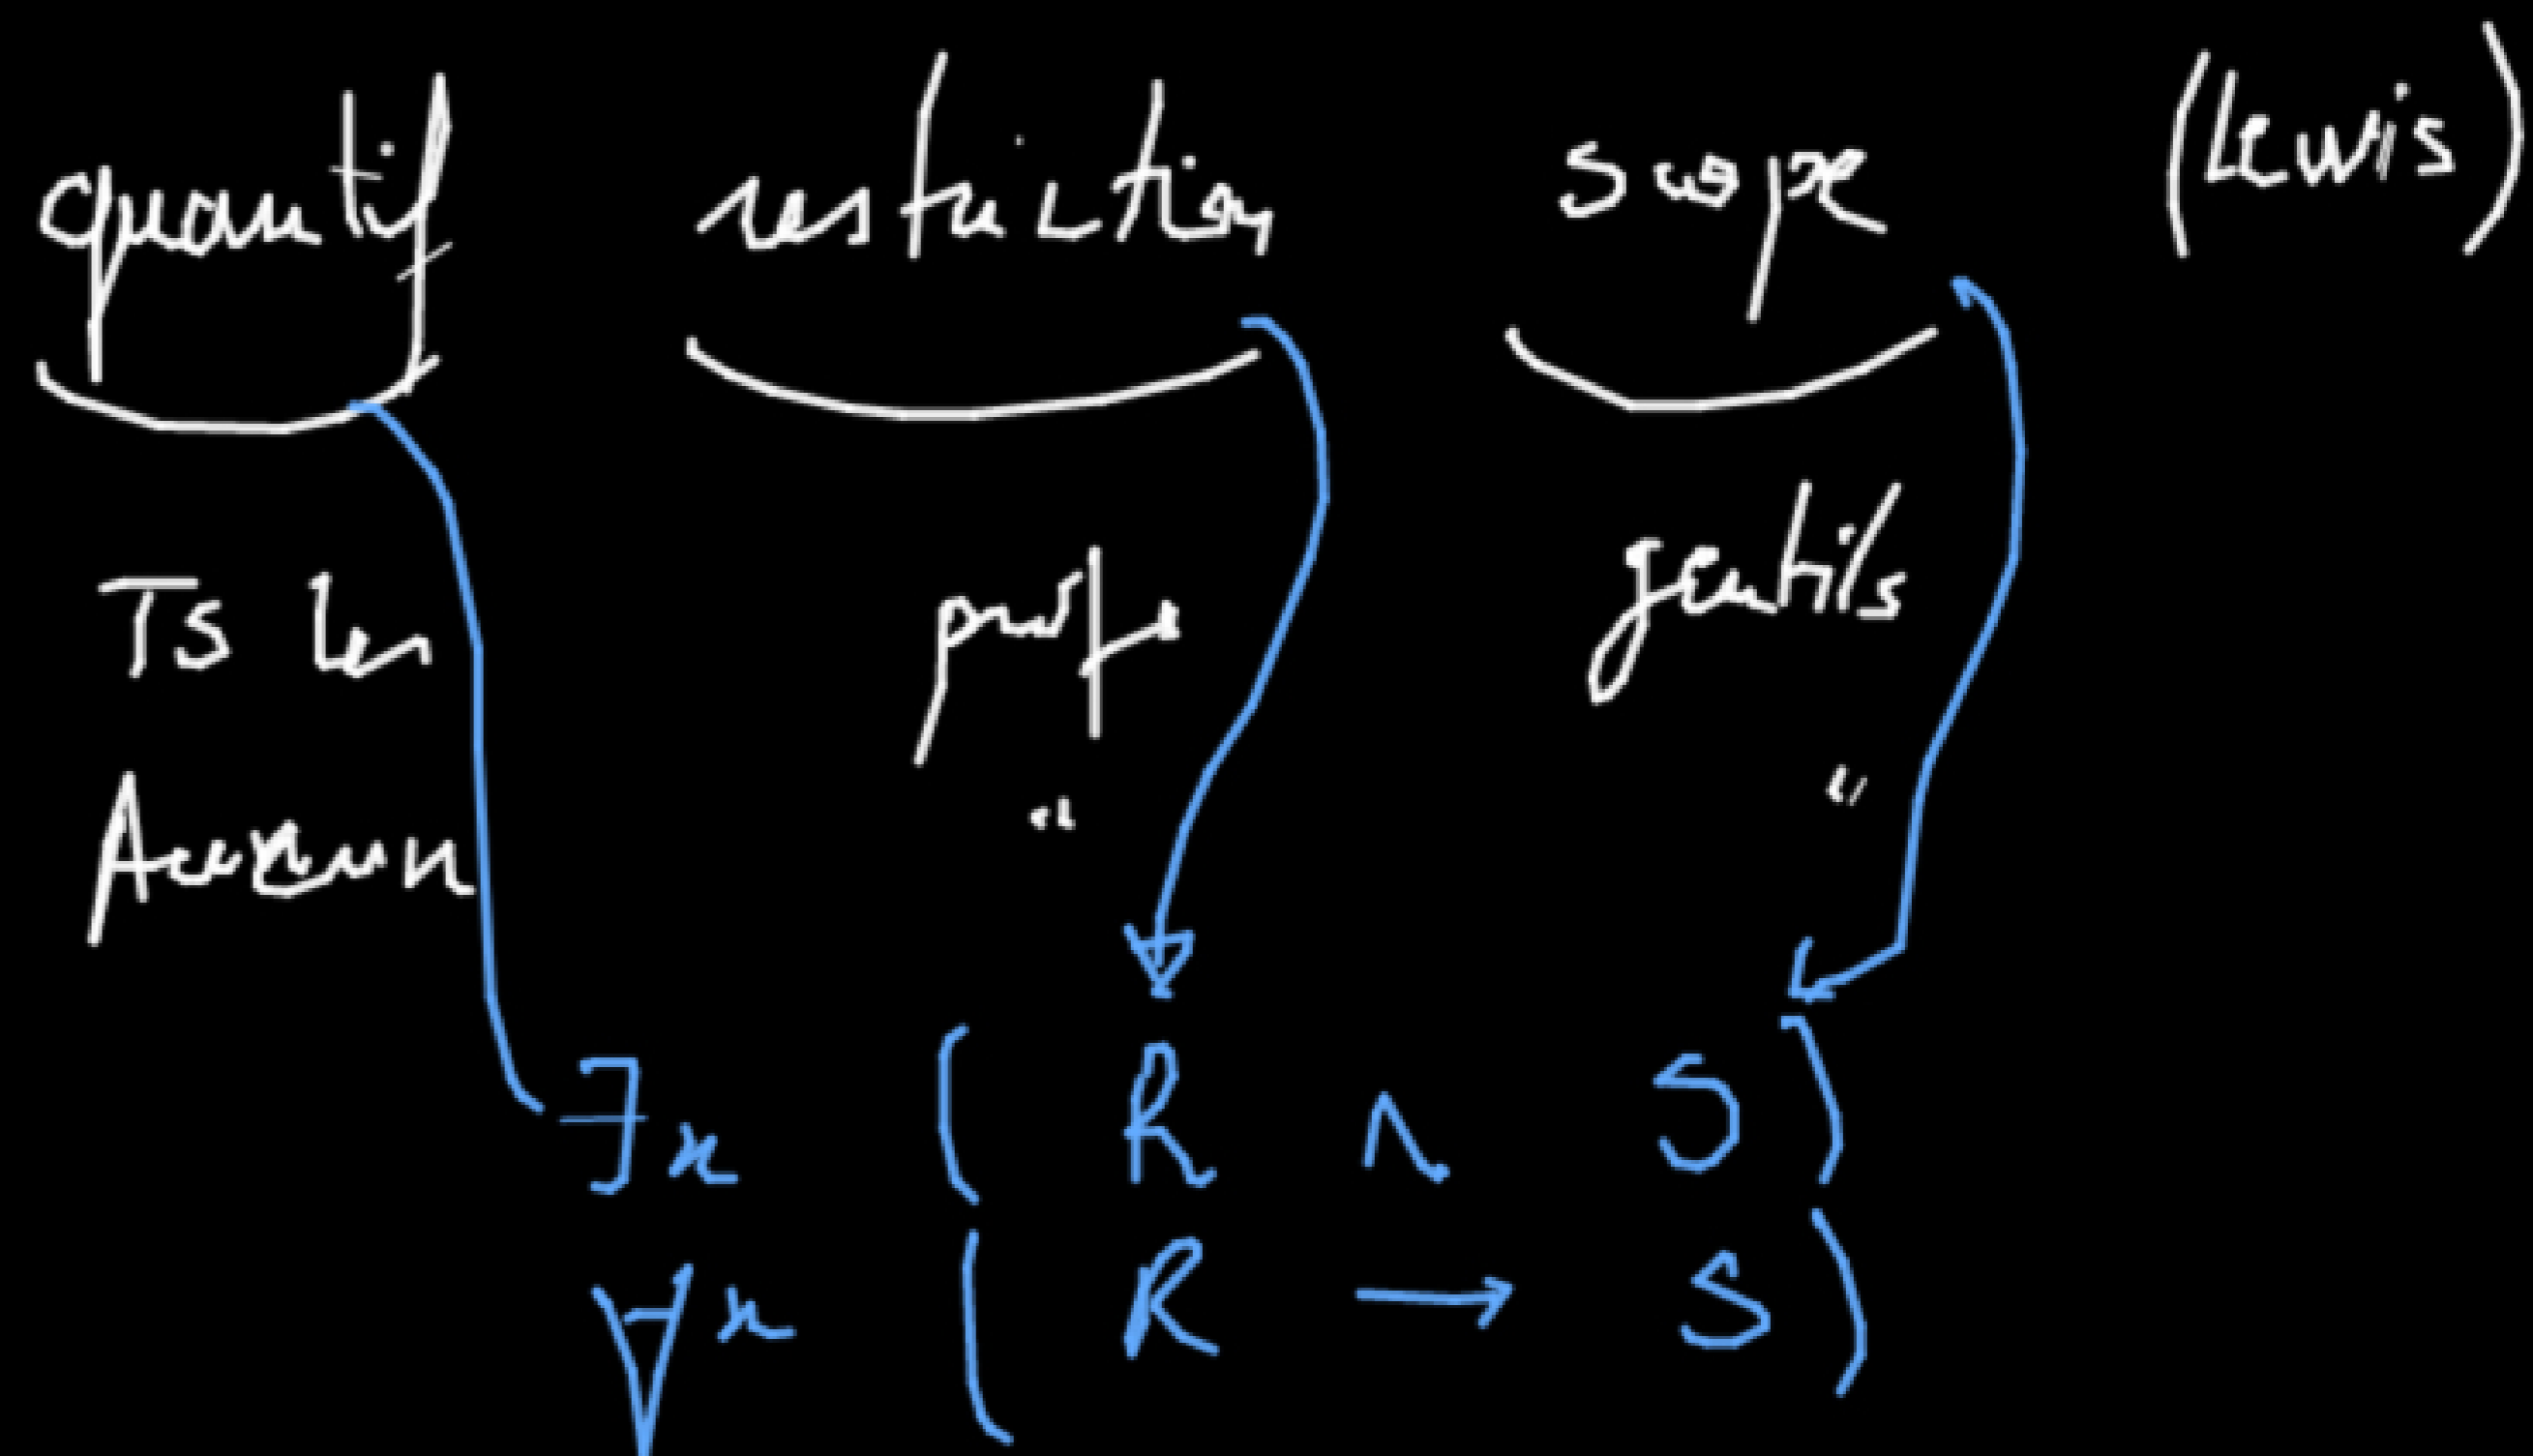 quantif restriction scope (Lewis)
Ts les profs gentils
Aucun " "
∃x ( R ∧ S )
∀x ( R → S )